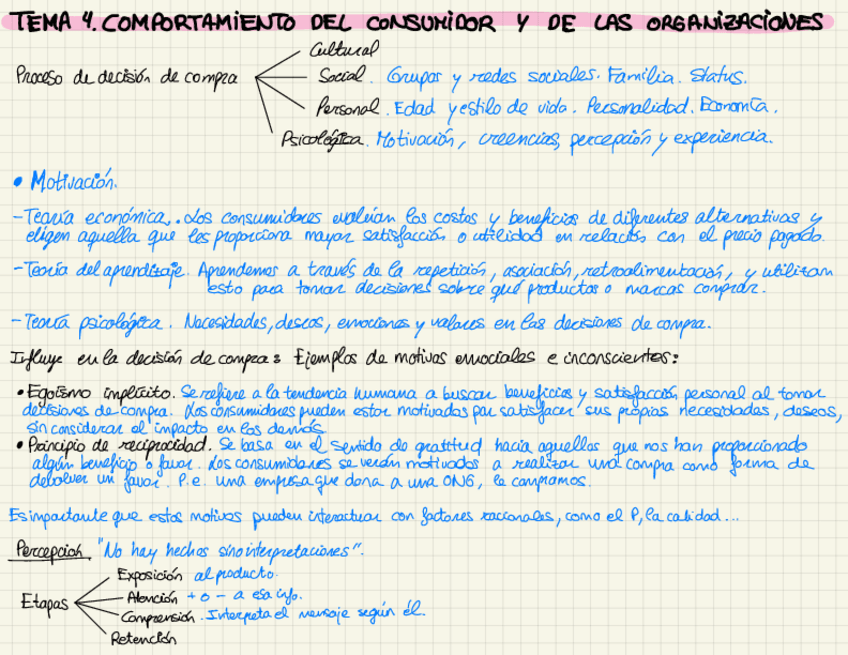 TEMA 4. COMPORTAMIENTO DEL CONSUMIDOR Y DE LAS ORGANIZACIONES
Proceso de decisión de compra
Cultural
Social. Grupos y redes sociales. Familia. Status.
Personal. Edad y estilo de vida. Personalidad. Economía.
Psicológica. Motivación, creencias, percepción y experiencia.
• Motivación.
- Teoría económica. Los consumidores evalúan los costos y beneficios de diferentes alternativas y
eligen aquella que les proporciona mayor satisfacción o utilidad en relación con el precio pagado.
- Teoría del aprendizaje. Aprendemos a través de la repetición, asociación, retroalimentación, y utilizan
esto para tomar decisiones sobre qué productos o marcas comprar.
- Teoría psicológica. Necesidades, deseos, emociones y valores en las decisiones de compra.
Influye en la decisión de compra: Ejemplos de motivos emociales e inconscientes:
• Egoísmo implícito. Se refiere a la tendencia humana a buscar beneficios y satisfacción personal al tomar
decisiones de compra. Los consumidores pueden estar motivados por satisfacer sus propias necesidades, deseos,
sin considerar el impacto en los demás.
• Principio de reciprocidad. Se basa en el sentido de gratitud hacia aquellos que nos han proporcionado
algún beneficio o favor. Los consumidores se verán motivados a realizar una compra como forma de
devolver un favor. P.e. una empresa que dona a una ONG, le compramos.
Es importante que estos motivos pueden interactuar con factores racionales, como el P, la calidad...
Percepción. "No hay hechos sino interpretaciones".
Etapas
Exposición al producto.
Atención + o - a esa info.
Comprensión. Interpreta el mensaje según él.
Retención